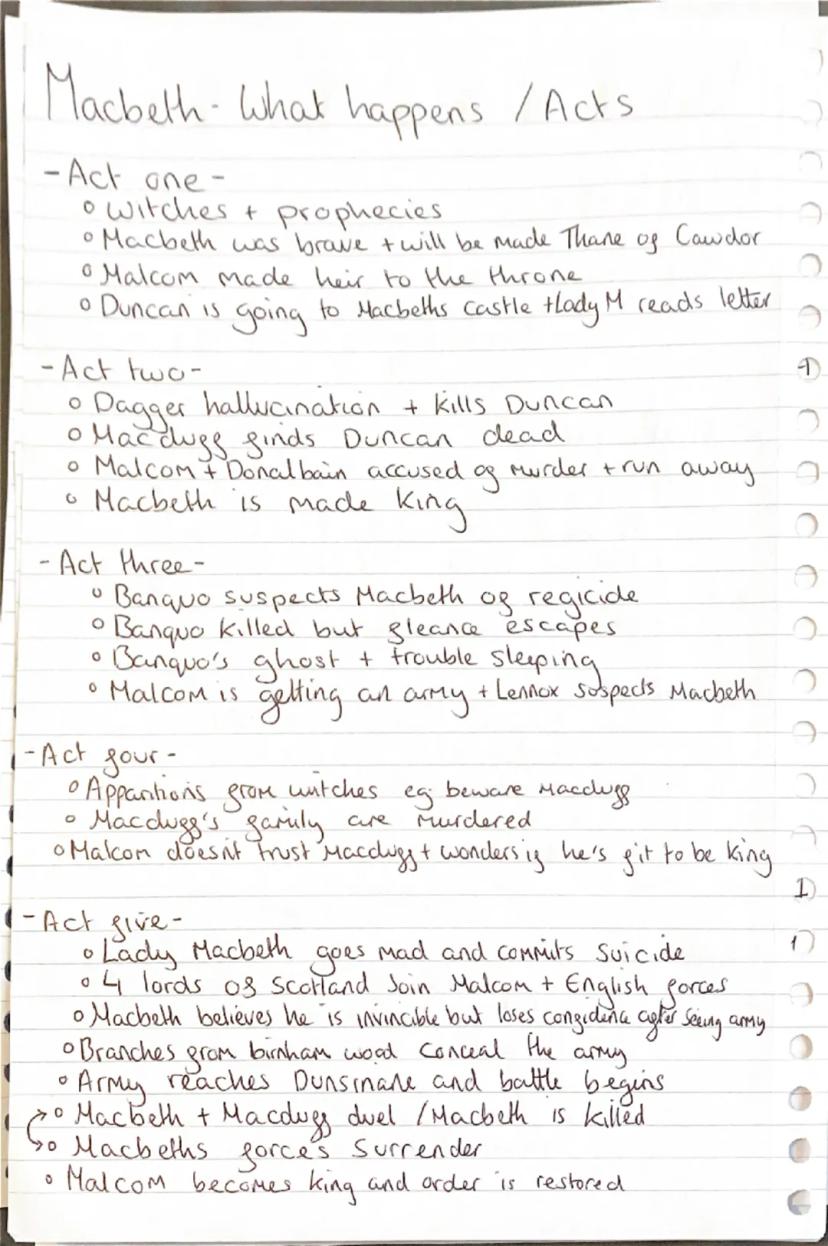 Macbeth - What happens / Acts
- Act one -
o Witches + prophecies
o Macbeth was brave + will be made Thane of Cawdor
o Malcom made heir to the throne
o Duncan is going to Macbeths castle + Lady M reads letter
- Act two -
o Dagger hallucination + kills Duncan
o Macduff finds Duncan dead
o Malcom + Donalbain accused of murder + run away
o Macbeth is made King
- Act three -
o Banquo suspects Macbeth of regicide
o Banquo killed but fleance escapes
o Banquo's ghost + trouble sleeping
o Malcom is getting an army + Lennox suspects Macbeth
- Act four -
o Apparitions from witches eg beware Macduff
o Macduff's family are murdered
o Malcom doesn't trust Macduff + wonders if he's fit to be king
- Act five -
o Lady Macbeth goes mad and commits suicide
o 4 lords of Scotland Join Malcom + English forces
o Macbeth believes he is invincible but loses confidence after seeing army
o Branches from birnham wood conceal the army
o Army reaches Dunsinane and battle begins
o Macbeth + Macduff duel / Macbeth is killed
o Macbeths forces surrender
o Malcom becomes king and order is restored